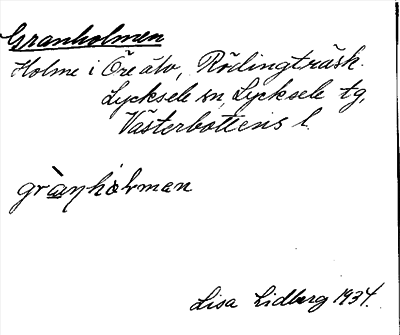 Granholmen
Holme i Öre älv, Rödingträsk.
Lycksele sn, Lycksele tg,
Västerbottens l.
Lisa Lidberg 1934.